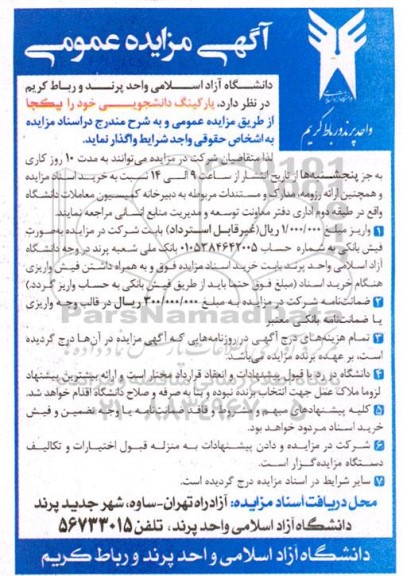 آگهی مزایده عمومی
واحد پرند و رباط کریم
دانشگاه آزاد اسلامی واحد پرند و رباط کریم
در نظر دارد، پارکینگ دانشجویی خود را یکجا
از طریق مزایده عمومی و به شرح مندرج در اسناد مزایده
به اشخاص حقوقی واجد شرایط واگذار نماید.
لذا متقاضیان شرکت در مزایده می‌توانند به مدت ۱۰ روز کاری
به جز پنجشنبه‌ها از تاریخ انتشار از ساعت ۹ الی ۱۴ نسبت به خرید اسناد مزایده
و همچنین ارائه رزومه، مدارک و مستندات مربوطه به دبیرخانه کمیسیون معاملات دانشگاه
واقع در طبقه دوم اداری دفتر معاونت توسعه و مدیریت منابع انسانی مراجعه نمایند.
۱ واریز مبلغ ۱/۰۰۰/۰۰۰ ریال (غیرقابل استرداد) بابت شرکت در مزایده به‌صورت
فیش بانکی به شماره حساب ۰۱۰۵۳۸۴۶۴۲۰۰۵ بانک ملی شعبه پرند در وجه دانشگاه
آزاد اسلامی واحد پرند بابت خرید اسناد مزایده فوق و به همراه داشتن فیش واریزی
هنگام خرید اسناد (مبلغ فوق حتما باید از طریق فیش بانکی به حساب واریز گردد.)
۲ ضمانت‌نامه شرکت در مزایده به مبلغ ۳۰۰/۰۰۰/۰۰۰ ریال در قالب وجه واریزی
یا ضمانت‌نامه بانکی معتبر
۳ تمام هزینه‌های درج آگهی در روزنامه‌هایی که آگهی مزایده در آن‌ها درج گردیده
است، بر عهده برنده مزایده می‌باشد.
۴ دانشگاه در رد یا قبول پیشنهادات و انعقاد قرارداد مختار است و ارائه بیشترین پیشنهاد
لزوما ملاک عمل جهت انتخاب برنده نبوده و بنا به صرفه و صلاح دانشگاه اقدام خواهد شد.
۵ کلیه پیشنهادهای مبهم و مشروط و فاقد ضمانت‌نامه یا وجه تضمین و فیش
خرید اسناد مردود خواهد بود.
۶ شرکت در مزایده و دادن پیشنهادات به منزله قبول اختیارات و تکالیف
دستگاه مزایده‌گزار است.
۷ سایر شرایط در اسناد مزایده درج گردیده است.
محل دریافت اسناد مزایده: آزادراه تهران-ساوه، شهر جدید پرند
دانشگاه آزاد اسلامی واحد پرند، تلفن ۵۶۷۳۳۰۱۵
دانشگاه آزاد اسلامی واحد پرند و رباط کریم
ParsNamadData